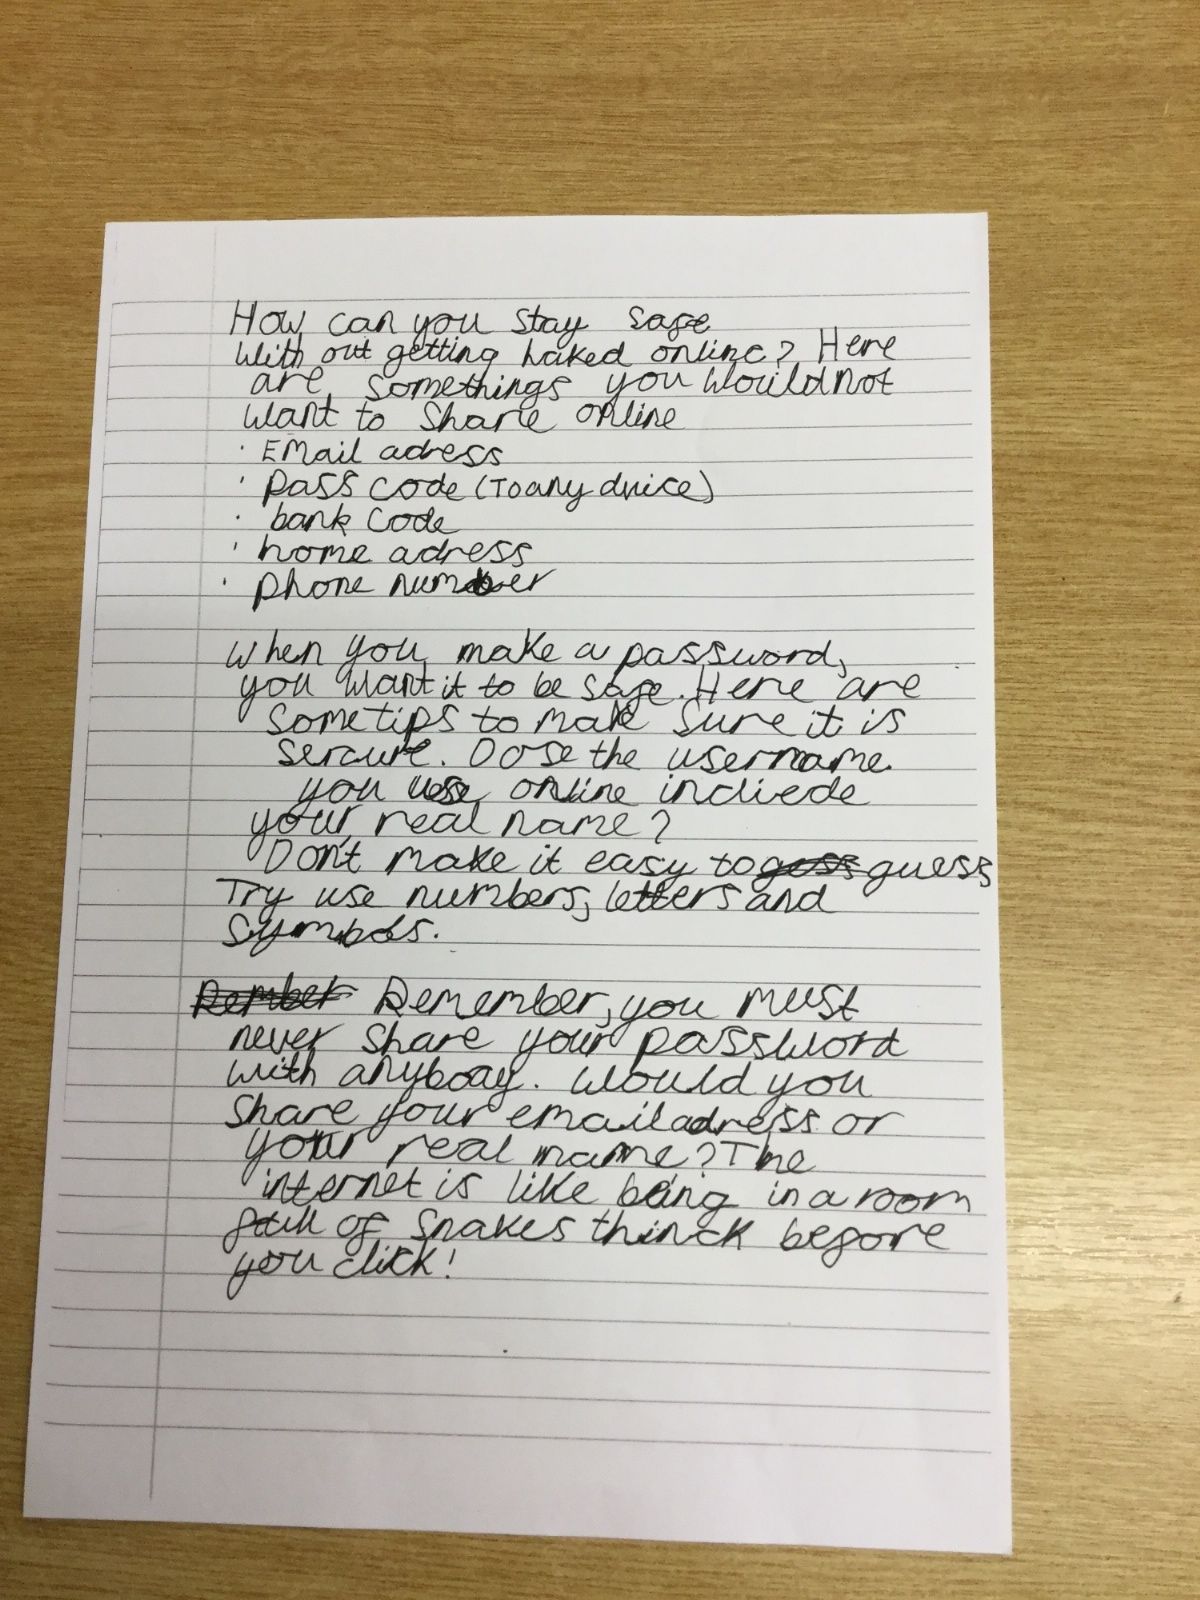 How can you stay safe
with out getting haked online? Here
are somethings you would not
want to share online
· EMail adress
· pass code (To any dvice)
· bank code
· home adress
· phone number
When you make a password,
you want it to be safe. Here are
some tips to make sure it is
sercure. Dose the username
you use online incluede
your real name?
Don't make it easy to guess
Try use numbers, letters and
symbols.
Remember, you must
never share your password
with anybody. Would you
share your email adress or
your real name? The
internet is like being in a room
full of snakes thinck before
you click!